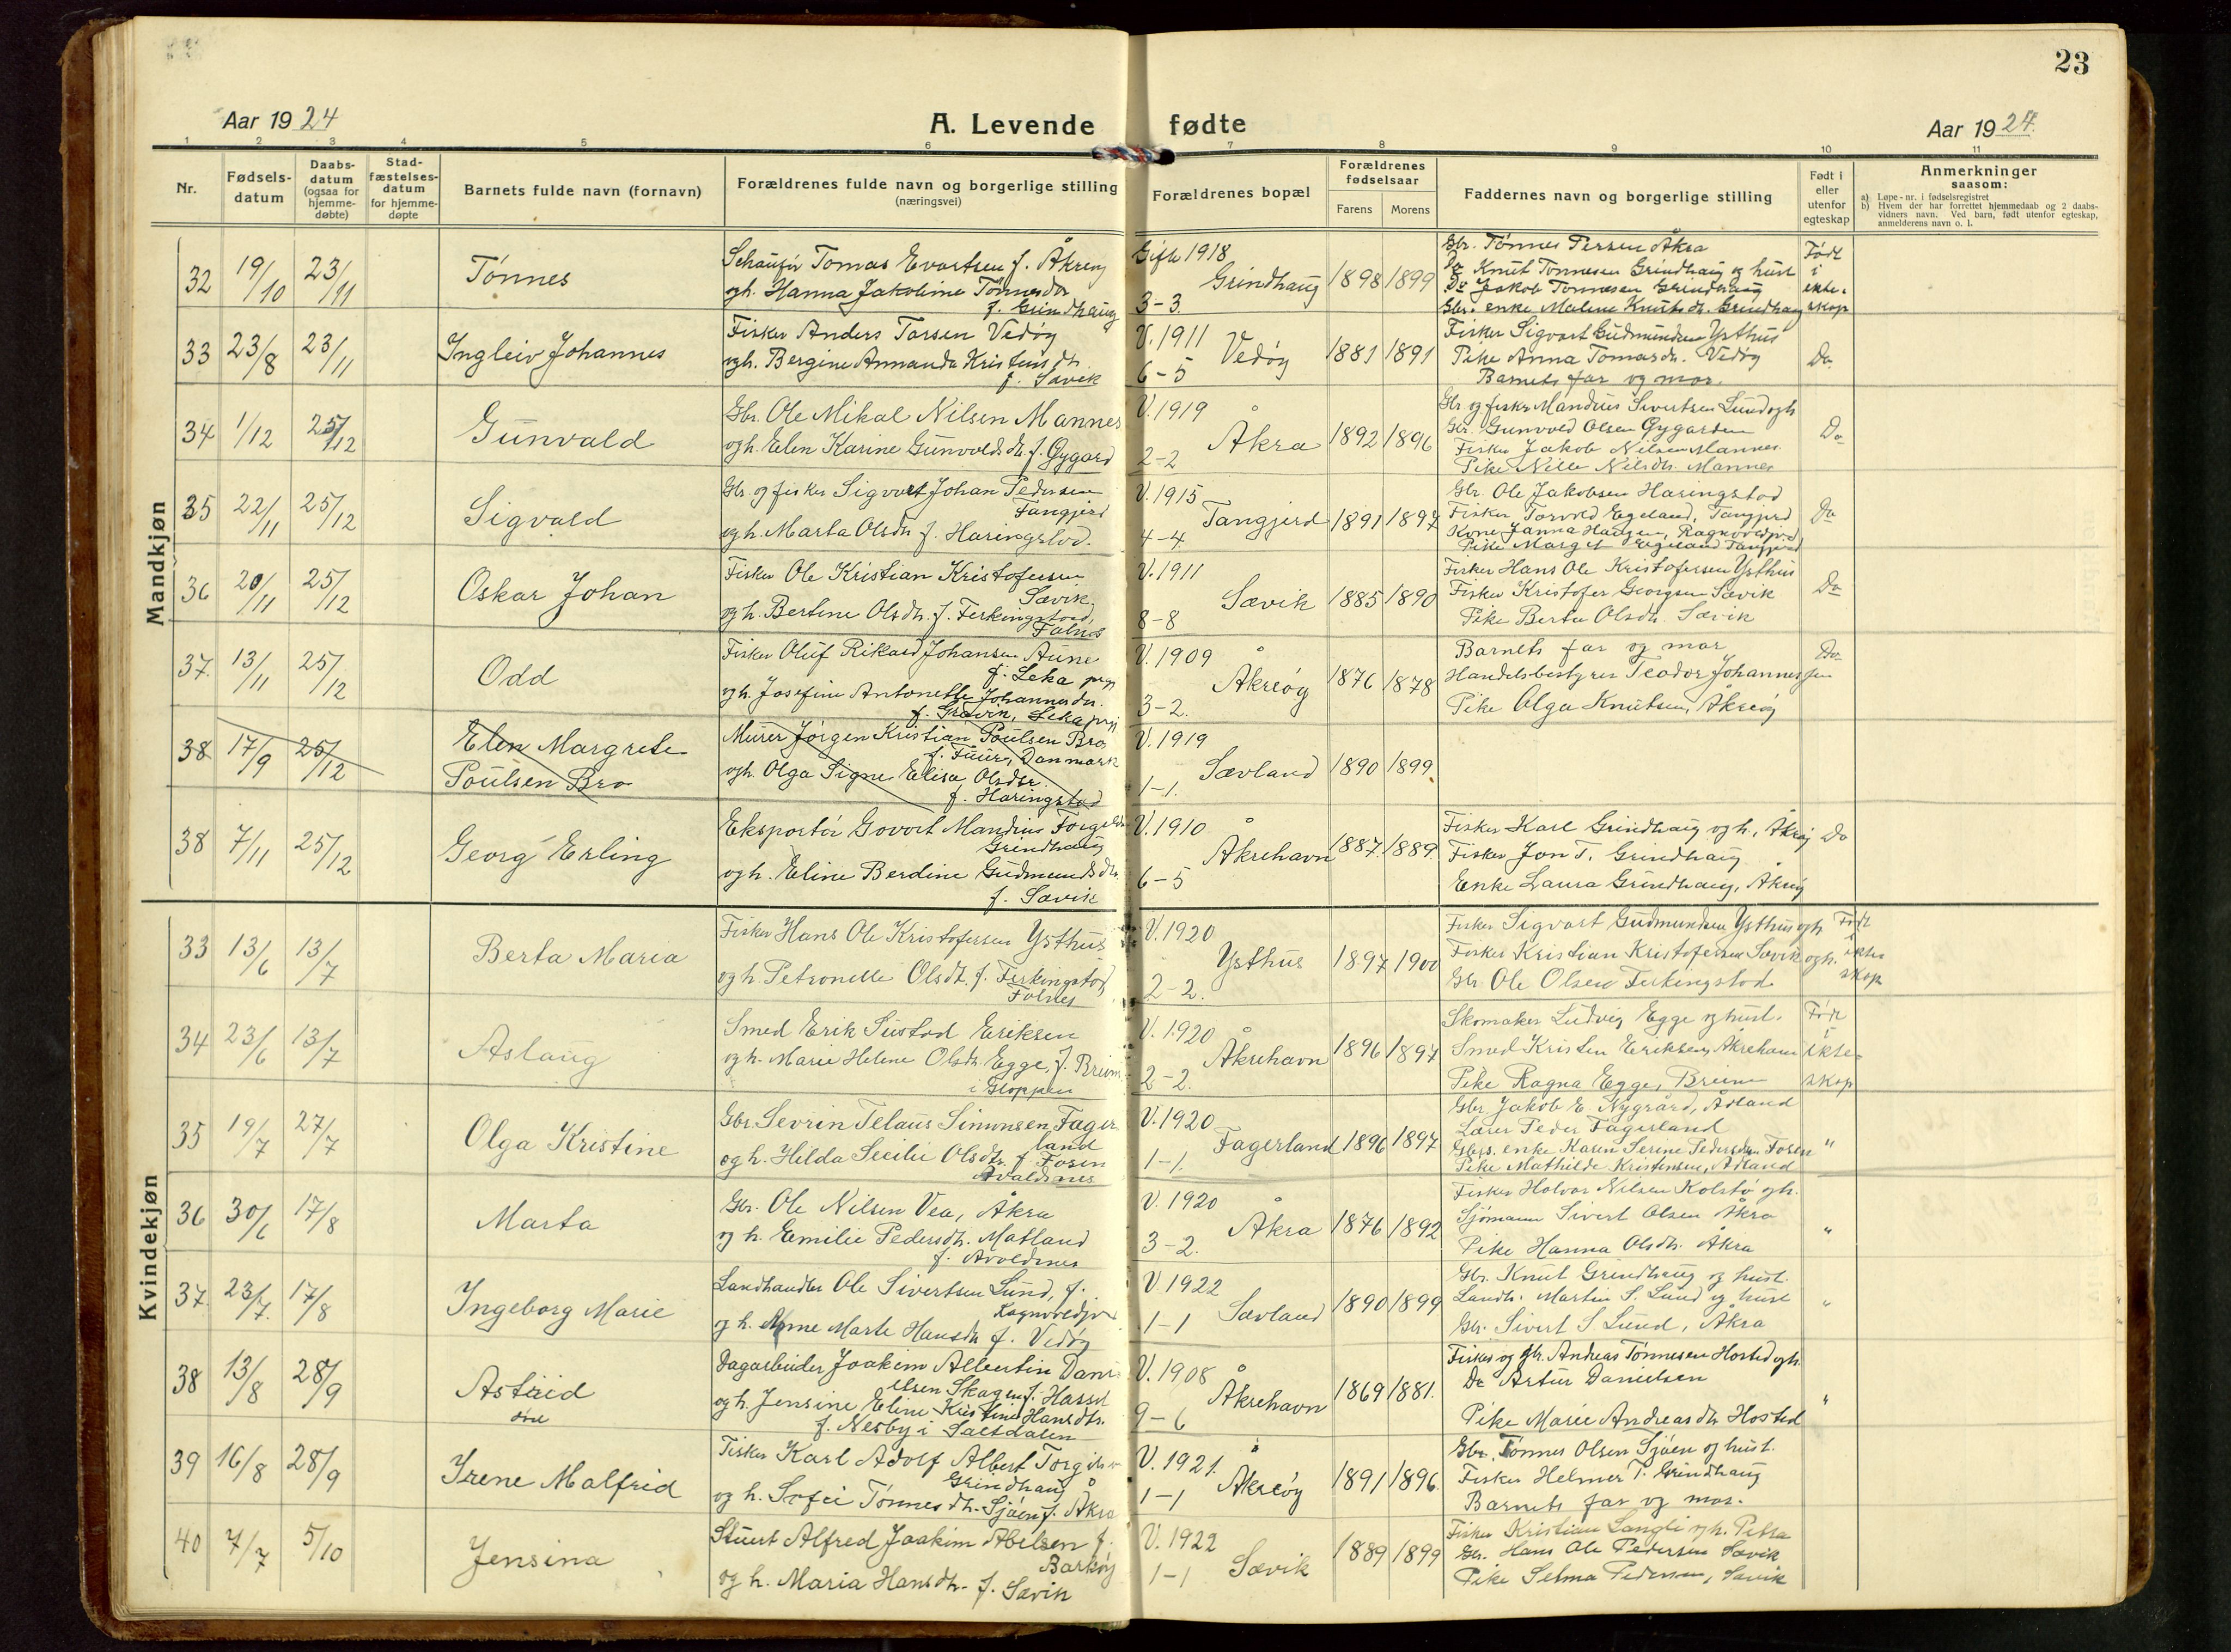 23
Aar 1924
A. Levende fødte
Aar 1924.
1 2 3 4 5 6 7 8 9 10 11
Nr.
Fødsels-
datum
Daabs-
datum
(ogsaa for
hjemme-
døbte)
Stad-
fæstelses-
datum
for hjemme-
døpte
Barnets fulde navn (fornavn)
Forældrenes fulde navn og borgerlige stilling
(næringsvei)
Forældrenes bopæl
Forældrenes
fødselsaar
Farens Morens
Faddernes navn og borgerlige stilling
Født i
eller
utenfor
egteskap
Anmerkninger
saasom:
a) Løpe-nr. i fødselsregistret
b) Hvem der har forrettet hjemmedaab og 2 daabs-
vidners navn. Ved barn, født utenfor egteskap,
anmelderens navn o. l.
Mandkjøn
32 19/10 23/11 Tønnes
Tomas Evartsen f. Åkreøy
og h. Hanna Jakobine Tønnesdtr
f. Grindhaug
Gifte 1918
Grindhaug
3-3.
1898 1899
Gbr. Tønnes Persen Åkra
Do Knut Tønnesen Grindhaug og hust
Do Jakob Tønnesen Grindhaug
Gbr. enke Malene Knutsdt. Grindhaug
Født
i
ekte-
skap
33 23/8 23/11 Ingleiv Johannes
Fisker Anders Torsen Vedøy
og h. Bergine Annanda Kristensdtr.
f. Sævik
V. 1911
Vedøy
6-5
1881 1891
Fisker Sigvart Gudmundsen Ysthus
Pike Anna Tomasdtr. Vedøy
Barnets far og mor.
Do
34 1/12 25/12 Gunvald
Gbr. Ole Mikal Nilsen Mannes
og h. Elen Karine Gunvoldsdtr. f. Gygard
V. 1919
Åkra
2-2
1892 1896
Gbr og fisker Mandius Sivertsen Lund og h
Gbr. Gunvold Olsen Gygarden
Fisker Jakob Nilsen Mannes
Pike Nille Nilsdtr. Mannes
Do
35 22/11 25/12 Sigvald
Gbr. og fisker Sigvart Johan Pedersen
Tangjerd
og h. Marta Olsdtr f. Haringstad.
V. 1915
Tangjerd
4-4
1891 1897
Gbr. Ole Jakobsen Haringstad
Fisker Torvald Egeland, Tangjerd
Kone Janna Haugen, Ragnvaldjord
Pike Marget Egeland Tangjerd
Do
36 20/11 25/12 Oskar Johan
Fisker Ole Kristian Kristofersen
Sævik
og h. Bertine Olsdtr. f. Ferkingstad,
Falnes
V. 1911
Sævik
8-8
1885 1890
Fisker Hans Ole Kristofersen Ysthus
Fisker Kristofer Georgsen Sævik
Pike Berta Olsdtr. Sævik
Do
37. 13/11 25/12 Odd
Fisker Oluf Rikard Johansen Aune
f. Leka prgj
og h. Josefine Antonette Johannesdtr.
f. Leka prgj
V. 1909
Åkreøy
3-2.
1876 1878
Barnets far og mor
Handelsbestyrer Teodor Johannessen
Pike Olga Knutsen, Åkreøy
Do
38 17/9 25/12 Elen Margrete
Poulsen Bro
Murer Jørgen Kristian Poulsen Bro
f. Fuur, Danmark
og h. Olga Signe Elisa Olsdtr.
f. Haringstad
V. 1919
Sævland
1-1.
1890 1899
38 7/11 25/12 Georg Erling
Eksportør Govert Mandius Torgilsen
Grindhaug
og h. Eline Berdine Gudmundsdtr.
f. Sævik
V. 1910
Åkrehavn
6-5
1887 1889.
Fisker Karl Grindhaug og h, Åkrøy
Fisker Jon T. Grindhaug
Enke Laura Grindhaug, Åkrøy
Do
Kvindekjøn
33 13/6 13/7 Berta Maria
Fisker Hans Ole Kristofersen Ysthus
og h. Petronelle Olsdtr. f. Ferkingstad,
Falnes
V. 1920
Ysthus
2-2.
1897 1900
Fisker Sigvart Gudmundsen Ysthus og h
Fisker Kristian Kristofersen Sævik og h.
Gbr Ole Olsen Ferkingstad
Født
i
ekte
skap
34 23/6 13/7 Aslaug
Smed Erik Sustad Eriksen
og h. Marie Helene Olsdtr. Egge, f. Breim
i Gloppen
V. 1920
Åkrehavn
2-2.
1896 1897
Skomaker Ludvig Egge og hust.
Smed Kristen Eriksen, Åkrehavn
Pike Ragna Egge, Breim
Født
i
ekte-
skap
35 19/7 27/7 Olga Kristine
Gbr. Sevrin Telaus Simonsen Fager-
land
og h. Hilda Secilie Olsdtr. f. Fosen
Avaldsnes
V. 1920
Fagerland
1-1.
1896 1897
Gbr. Jakob E Nygård, Ådland
Lærer Peder Fagerland
Gbrs. enke Karen Serine Pedersdtr. Fosen
Pike Mathilde Kristensen, Ådland
"
36 30/6 17/8 Marta
Gbr. Ole Nilsen Vea, Åkra
og h. Emilie Pedersdtr. Matland
f. Avaldsnes
V. 1920
Åkra
3-2.
1876 1892
Fisker Halvor Nilsen Kolstø og h.
Sjømann Sivert Olsen Åkra
Pike Hanna Olsdtr. Åkra
"
37. 23/7. 17/8 Ingeborg Marie
Landhandler Ole Sivertsen Lund, f.
Ragnvaldjord
og h. Anne Marte Hansdtr f. Vedøy
V 1922
Sævland
1-1
1890 1899
Gbr. Knut Grindhaug og hust.
Landh. Martin S. Lund og hust
Gbr. Sivert S Lund, Åkra
"
38 13/8 28/9 Astrid
død
Dagarbeider Joakim Albertin Dani-
elsen Skagen f. Hassel
og h. Jensine Eline Kristine Hansdtr.
f. Nesby i Saltdalen
V. 1908
Åkrehavn
9-6
1869 1881.
Fisker og gbr. Andreas Tønnesen Hostad og h.
Do Artur Danielsen
Pike Marie Andreasdtr Hostad
"
39 16/8 28/9 Irene Malfrid
Fisker Karl Adolf Albert Torgilsen
Grindhaug
og h. Sofie Tønnesdtr. Sjøen f. Åkra
V. 1921.
Åkreøy
1-1
1891 1896.
Gbr. Tønnes Olsen Sjøen og hust.
Fisker Helmer T. Grindhaug
Barnets far og mor.
40 7/7 5/10 Jensina
Stuert Alfred Joakim Abelsen f.
Barkøy
og h. Maria Hansdtr. f. Sævik
V. 1922
Sævik
1-1
1889 1899
Fisker Kristian Langli og h. Petra
Gbr. Hans Ole Pedersen Sævik
Pike Selma Pedersen, Sævik